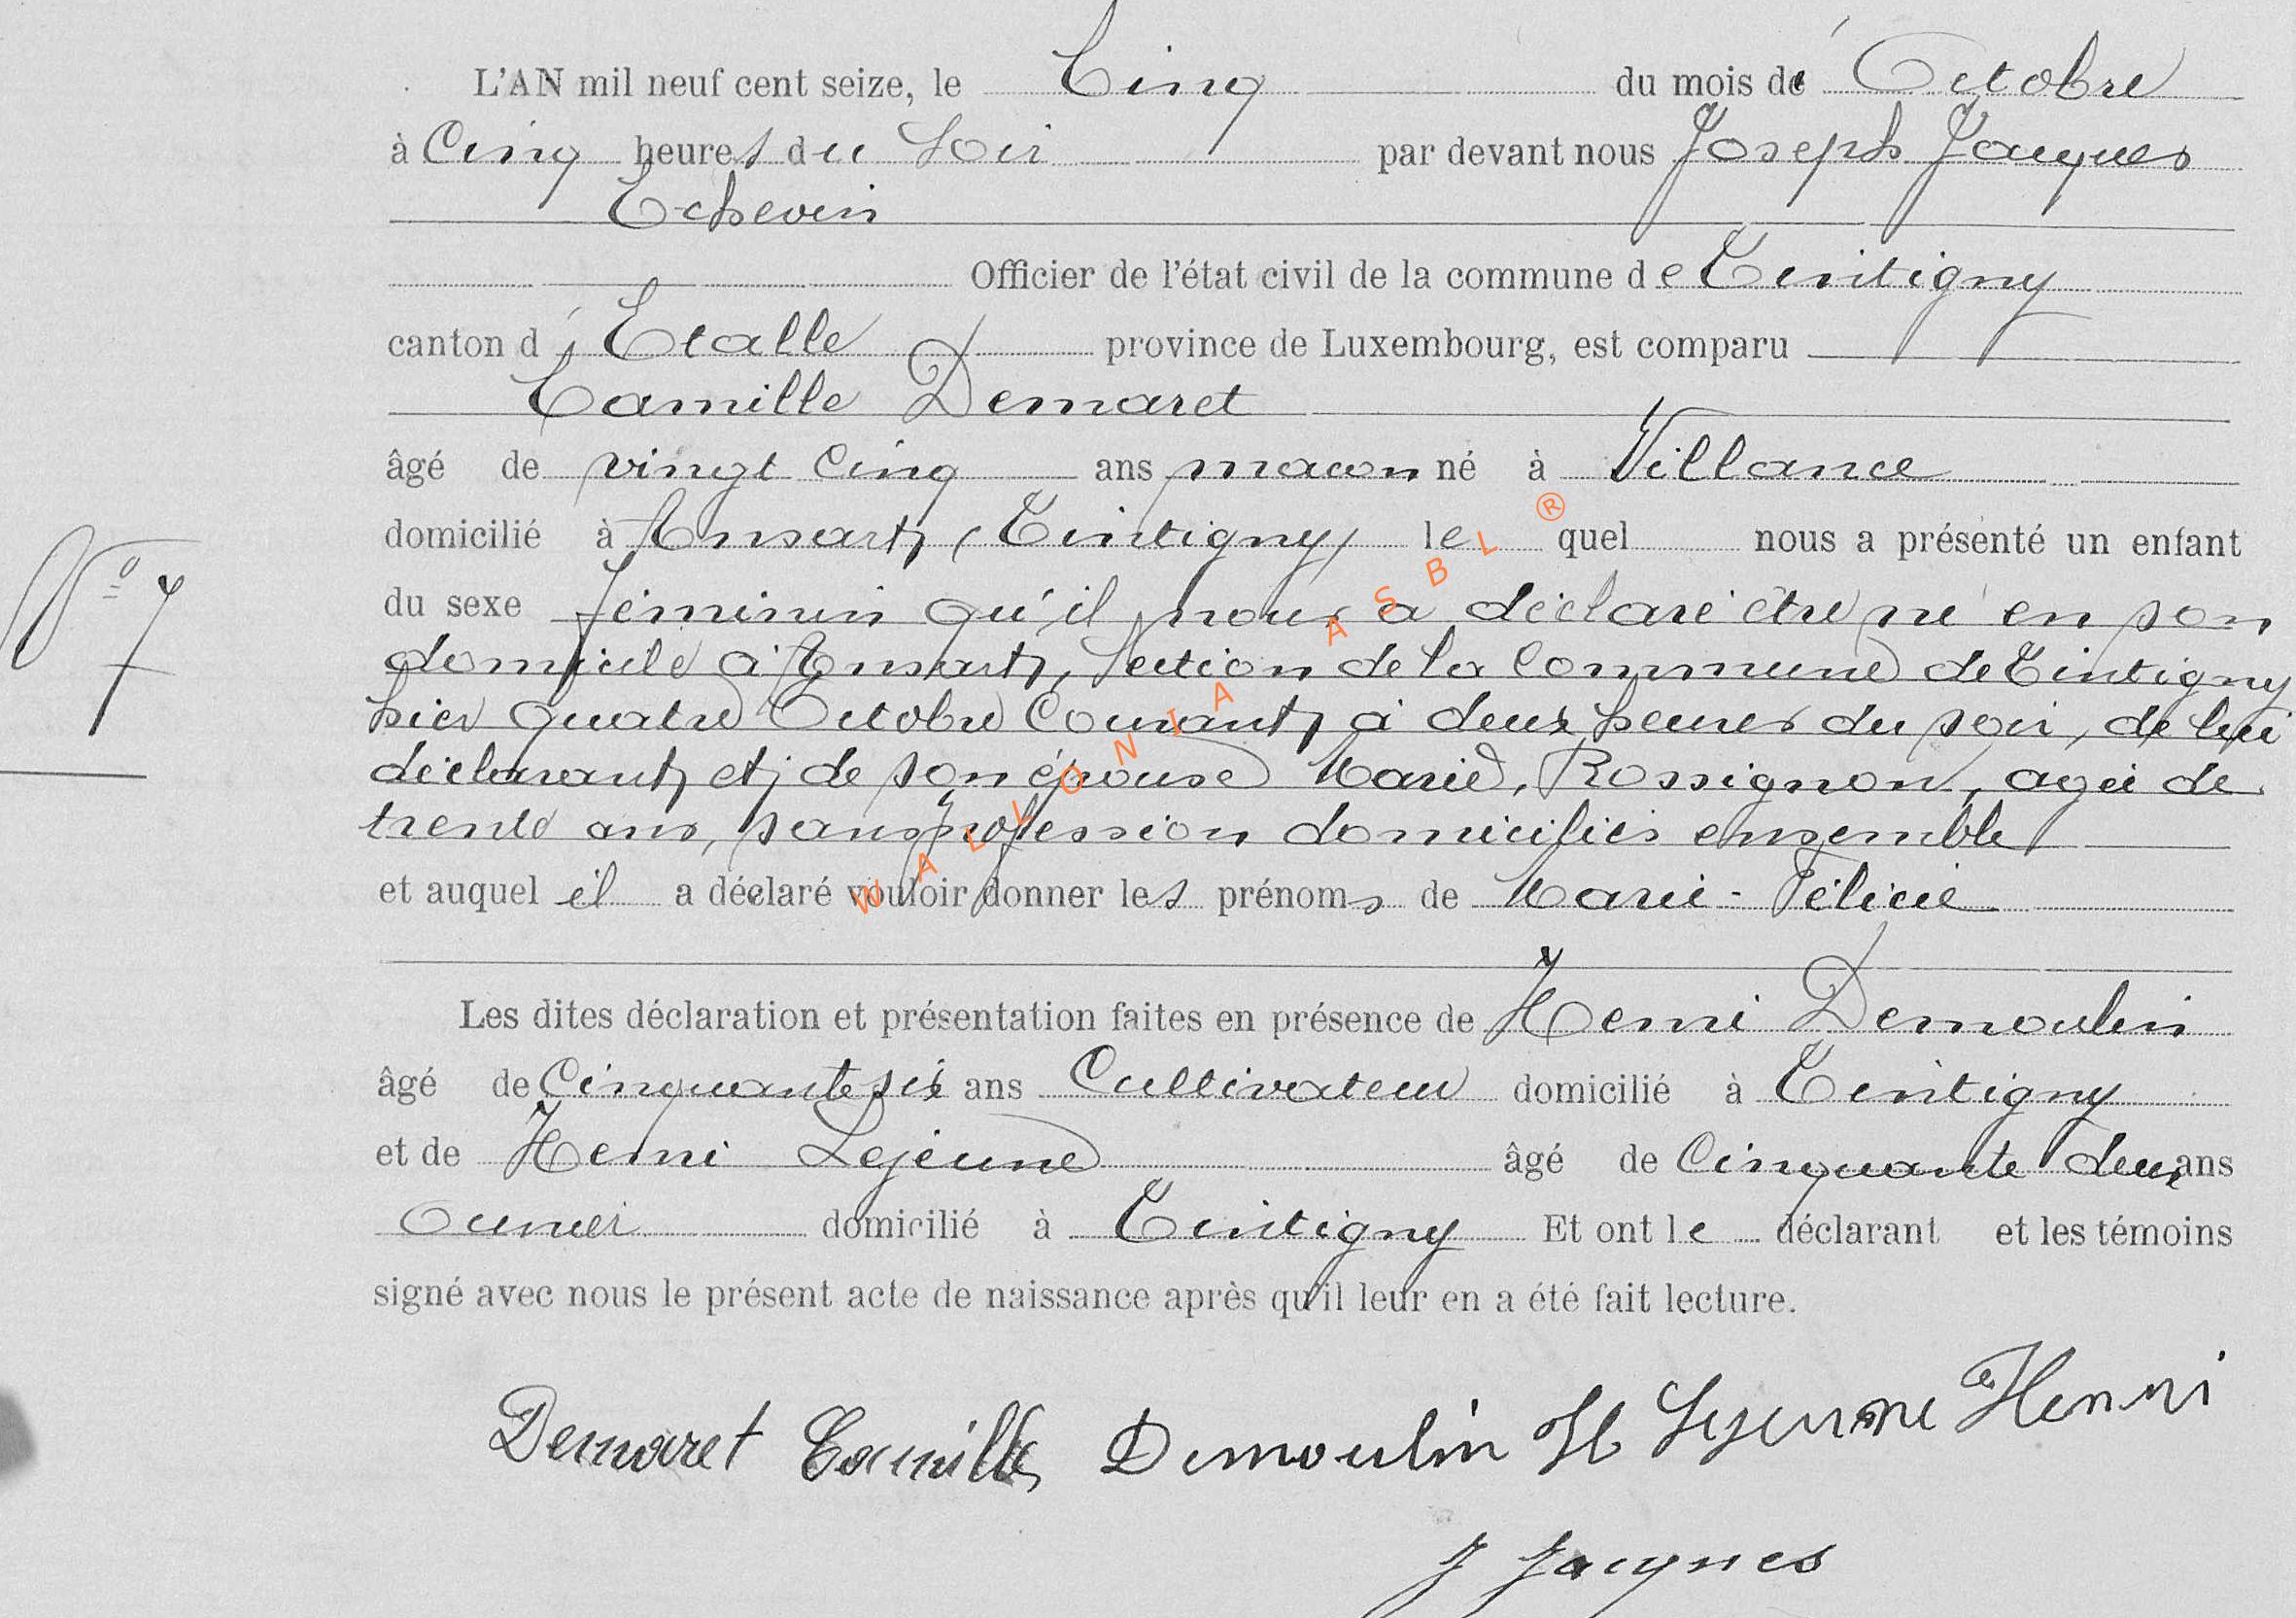 L'AN mil neuf cent seize, le Cinq du mois d' Octobre
à Cinq heures du Soir par devant nous Joseph Jacques
Echevin
Officier de l'état civil de la commune de Tintigny
canton d' Etalle province de Luxembourg, est comparu
Camille Demaret
âgé de vingt cinq ans macon né à Villance
domicilié à Ansart, (Tintigny) lequel nous a présenté un enfant
N° 7
du sexe féminin qu'il nous a déclaré être né en son
domicile à Ansart, Section de la Commune de Tintigny
hier quatre Octobre Courant, à deux heures du soir, de lui
déclarant, et de son épouse Marie, Rossignon, agée de
trente ans, sans profession domiciliés ensemble
et auquel il a déclaré vouloir donner les prénoms de Marie-Félicie
Les dites déclaration et présentation faites en présence de Henri Demoulin
âgé de Cinquante six ans Cultivateur domicilié à Tintigny
et de Henri Lejeune âgé de Cinquante deux ans
ouvrier domicilié à Tintigny Et ont le déclarant et les témoins
signé avec nous le présent acte de naissance après qu'il leur en a été fait lecture.
Demaret Camille Demoulin H Lejeune Henri
J Jacques
WALLONIA ASBL ®